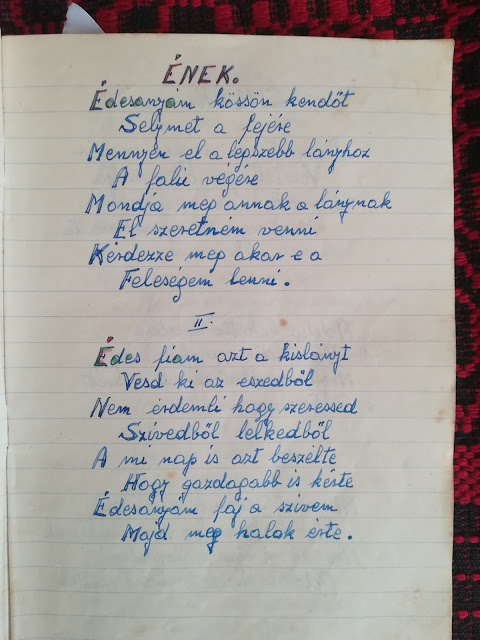 ÉNEK.
Édesanyám kössön kendőt
Selymet a fejére
Mennyén el a lépszebb lányhoz
A falú végére
Mondja meg annak a lánynak
El szeretném venni
Kérdezze meg akar e a
Feleségem lenni.
II.
Édes fiam azt a kislányt
Vesd ki az eszedből
Nem érdemli hogy szeressed
Szívedből lelkedből
A mi nap is azt beszélte
Hogy gazdagabb is kérte
Édesanyám fáj a szívem
Majd meg halok érte.